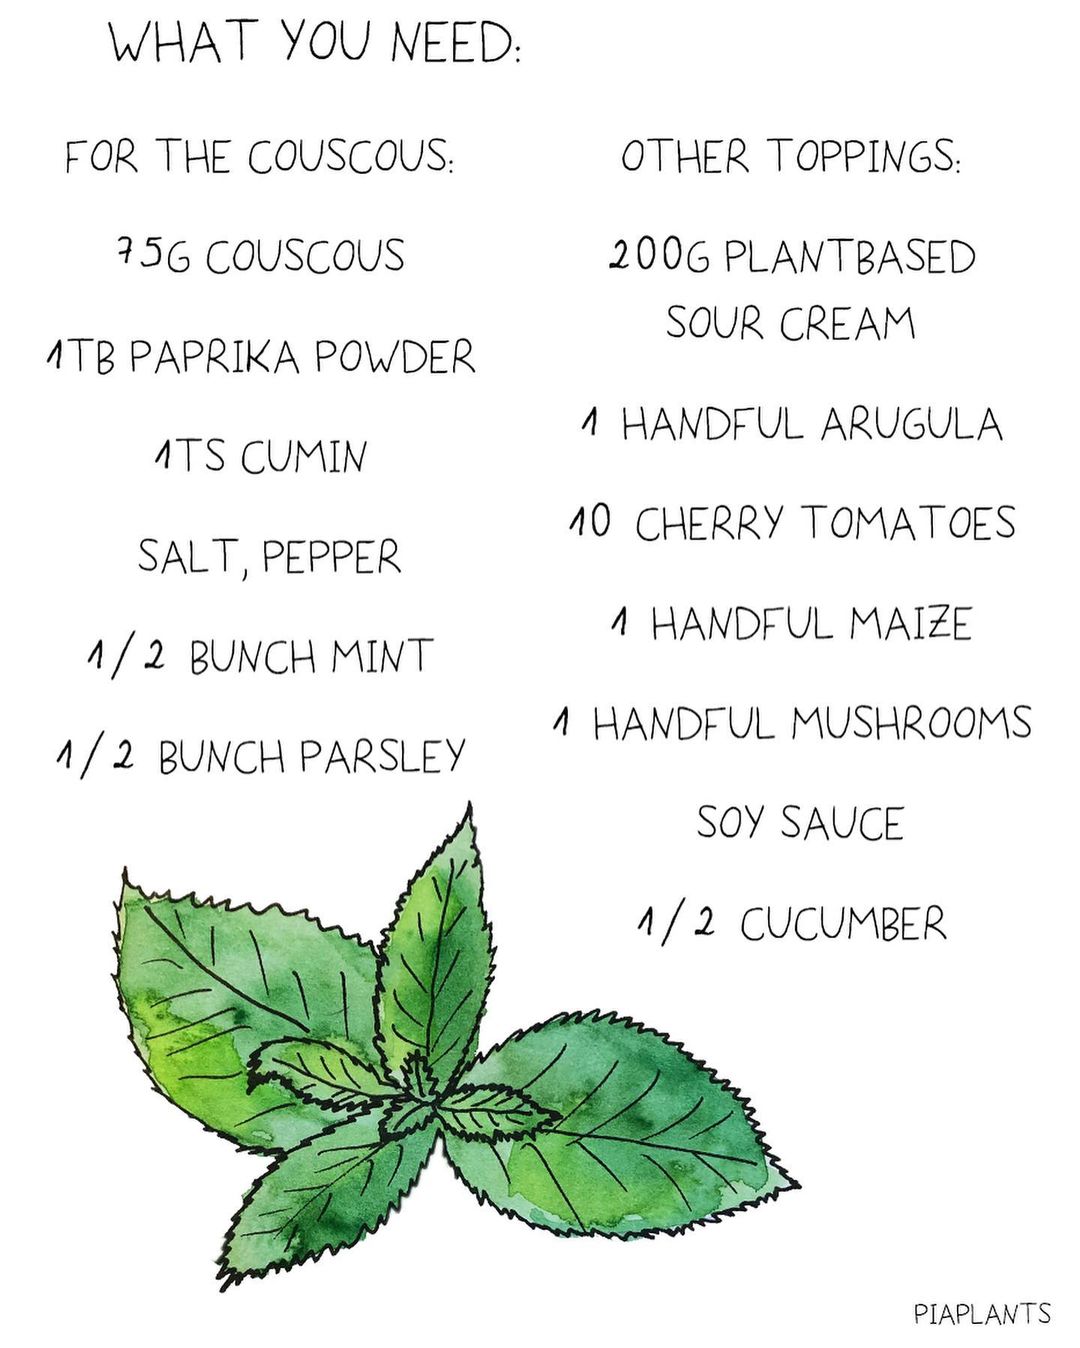 WHAT YOU NEED:
FOR THE COUSCOUS:
75G COUSCOUS
1TB PAPRIKA POWDER
1TS CUMIN
SALT, PEPPER
1/2 BUNCH MINT
1/2 BUNCH PARSLEY
OTHER TOPPINGS:
200G PLANTBASED
SOUR CREAM
1 HANDFUL ARUGULA
10 CHERRY TOMATOES
1 HANDFUL MAIZE
1 HANDFUL MUSHROOMS
SOY SAUCE
1/2 CUCUMBER
PIAPLANTS